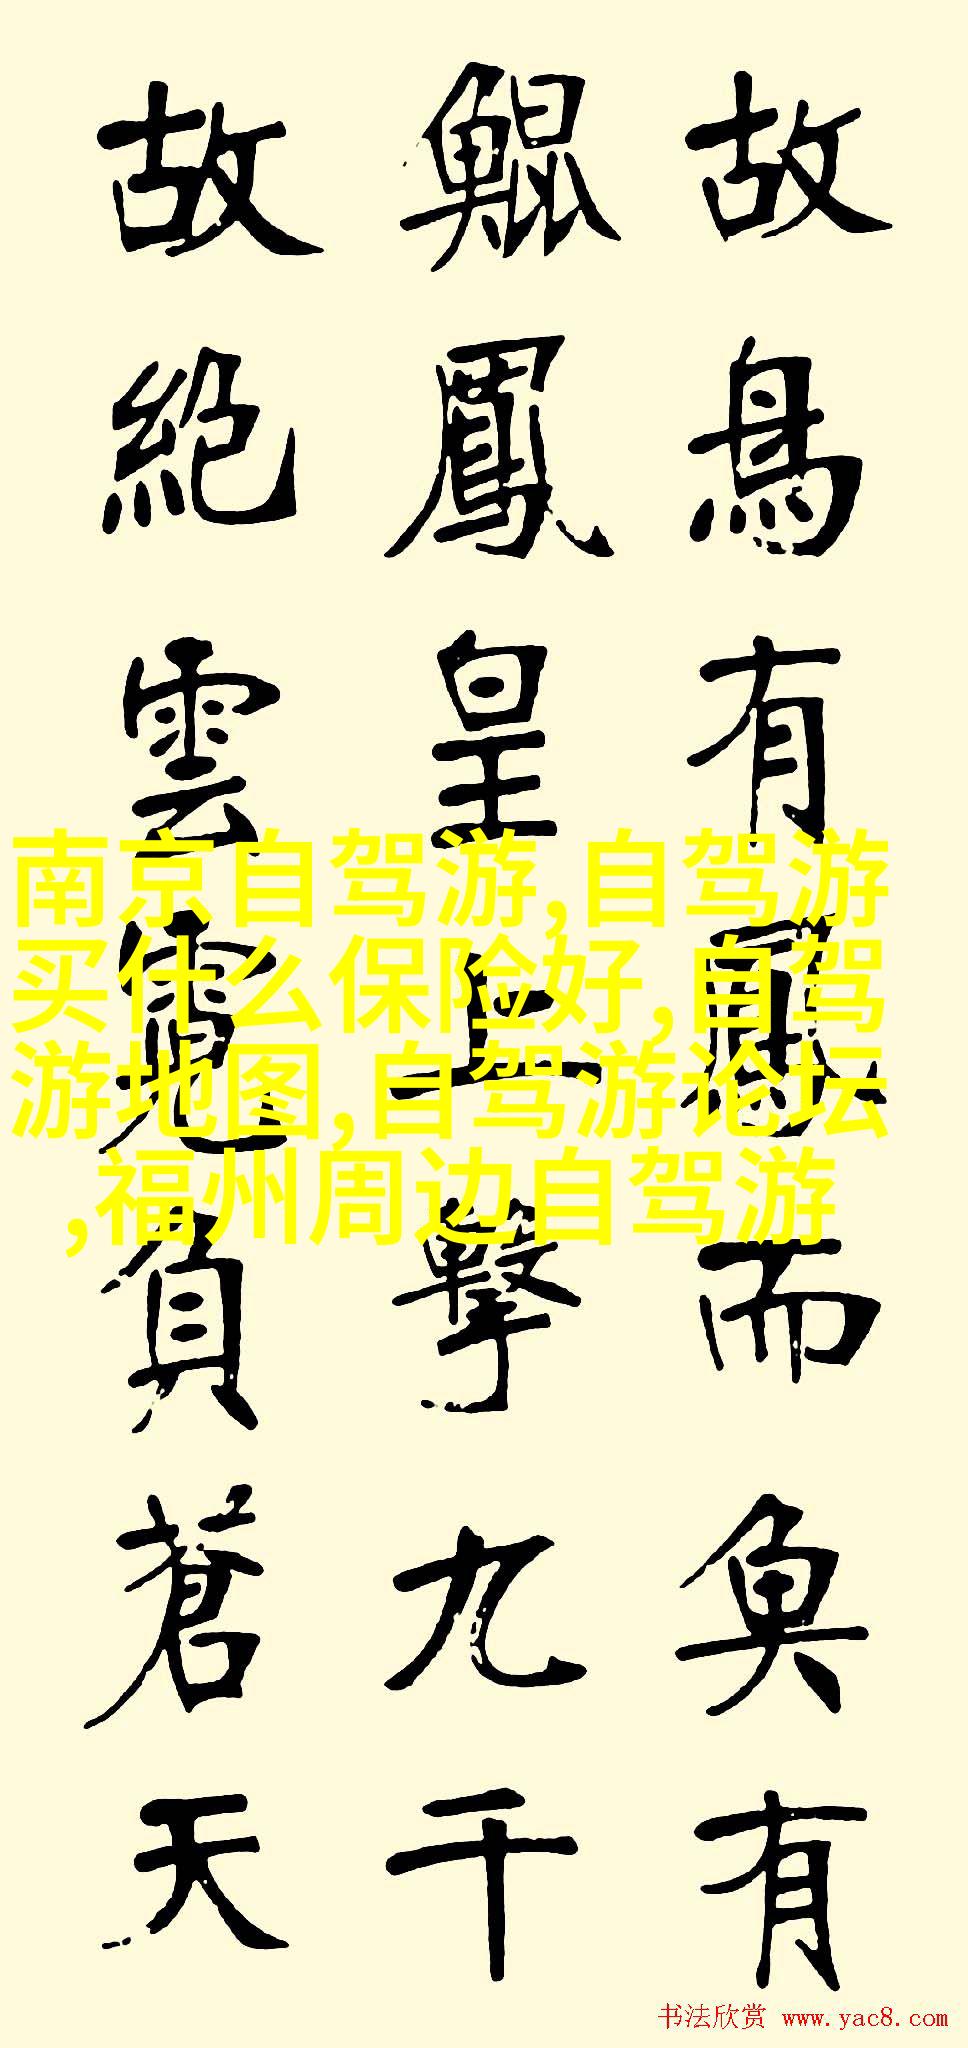 故鳥有鳳而魚有
鯤鳳皇上擊九千
故絶雲霓負蒼天
南京自驾游,自驾游
买什么保险好,自驾
游地图,自驾游论坛
,福州周边自驾游
书法欣赏 www.yac8.com